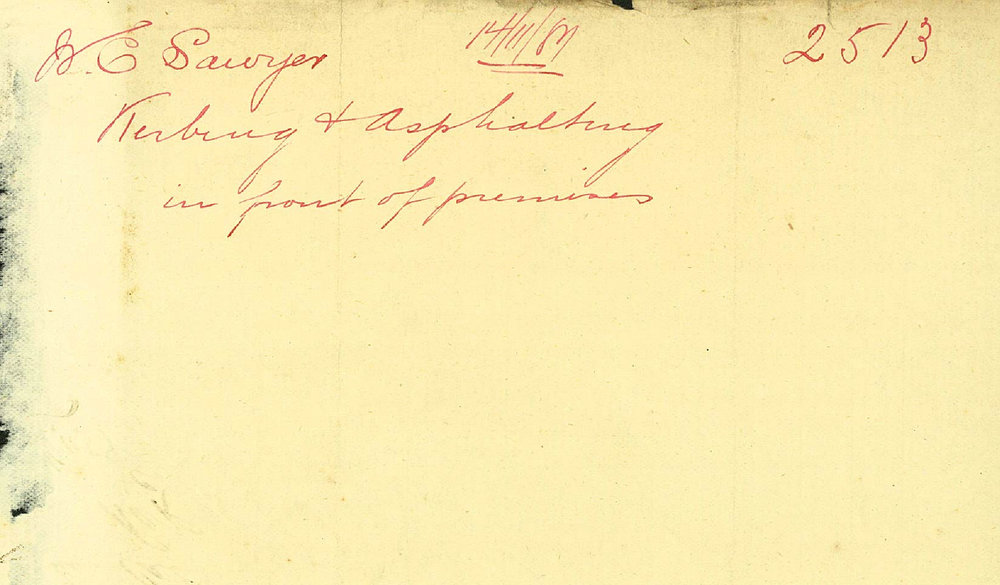 W. E Sawyer 14/11/87 2513
Kerbing & Asphalting
in front of premises